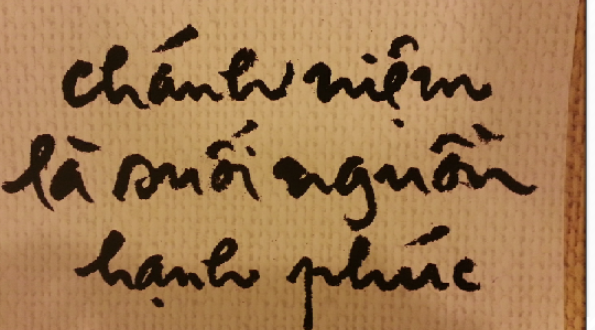 chánh niệm
là suối nguồn
hạnh phúc